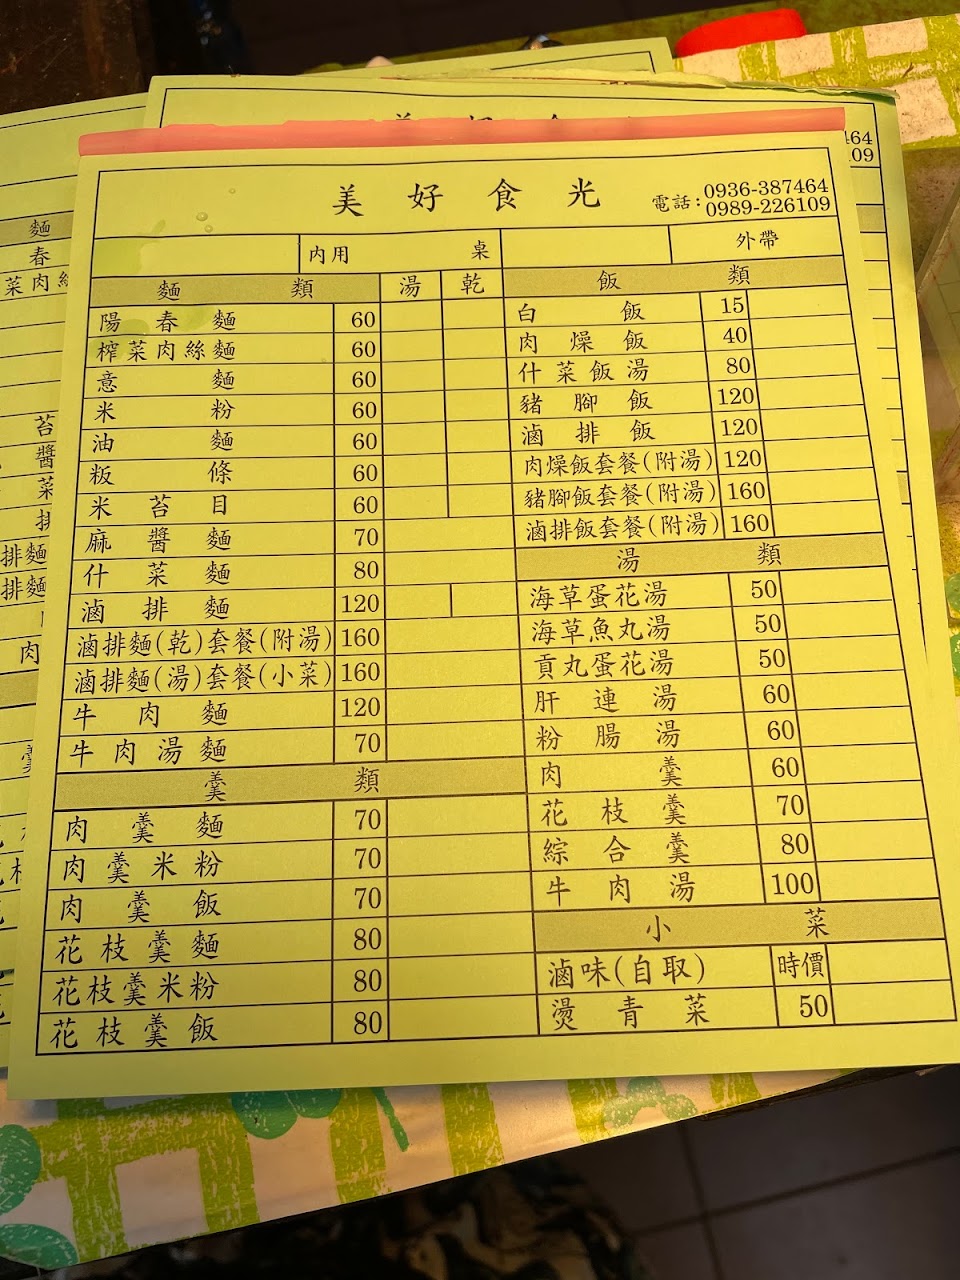 美好食光
電話:0936-387464
0989-226109
內用 桌
外帶
麵類 湯 乾
陽春麵 60
榨菜肉絲麵 60
意麵 60
米粉 60
油麵 60
粄條 60
米苔目 60
麻醬麵 70
什菜麵 80
滷排麵 120
滷排麵(乾)套餐(附湯) 160
滷排麵(湯)套餐(小菜) 160
牛肉麵 120
牛肉湯麵 70
羹類
肉羹麵 70
肉羹米粉 70
肉羹飯 70
花枝羹麵 80
花枝羹米粉 80
花枝羹飯 80
飯類
白飯 15
肉燥飯 40
什菜飯湯 80
豬腳飯 120
滷排飯 120
肉燥飯套餐(附湯) 120
豬腳飯套餐(附湯) 160
滷排飯套餐(附湯) 160
湯類
海草蛋花湯 50
海草魚丸湯 50
貢丸蛋花湯 50
肝連湯 60
粉腸湯 60
肉羹 60
花枝羹 70
綜合羹 80
牛肉湯 100
小菜
滷味(自取) 時價
燙青菜 50
464
09
麵
春
菜肉絲
苔
醬
菜
排
排麵
排麵
肉
羹